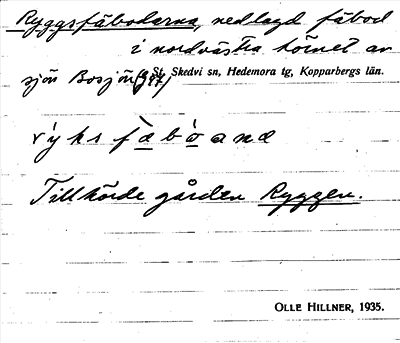 Ryggsfäbodarna, nedlagd fäbod
i nordvästra hörnet av
sjön Borsjön St. Skedvi sn, Hedemora tg, Kopparbergs län.
Tillhörde gården Ryggen.
OLLE HILLNER, 1935.